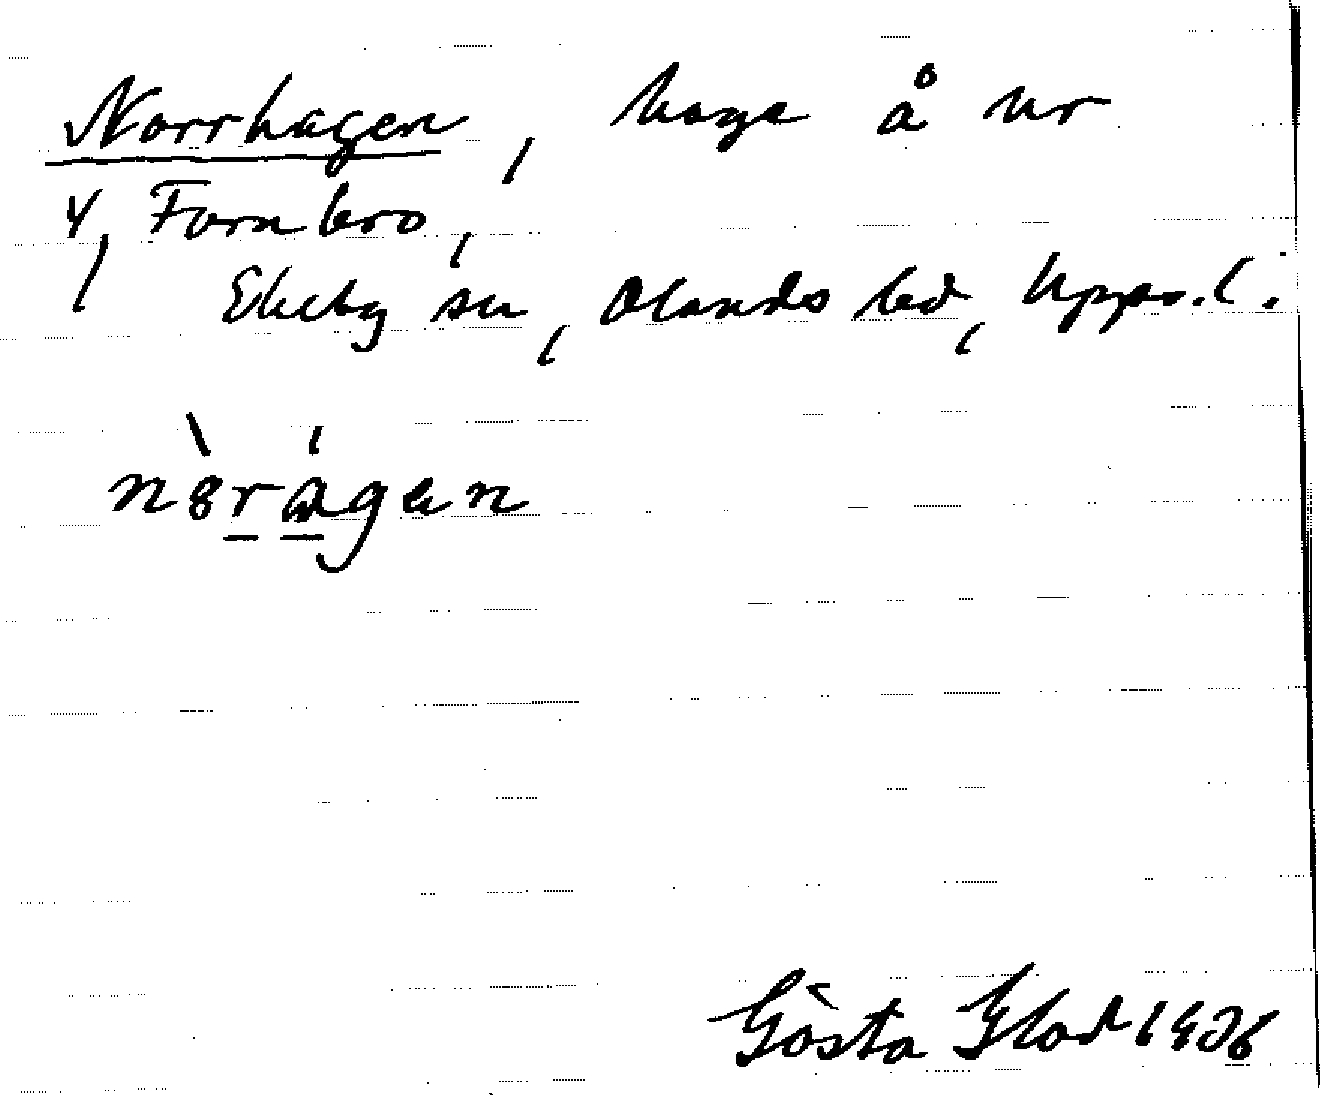 Norrhagen, hage å nr
4, Fornbro,
Ekeby sn, Olands hd, Upps. l.
nòrágen
Gösta Flod 1936